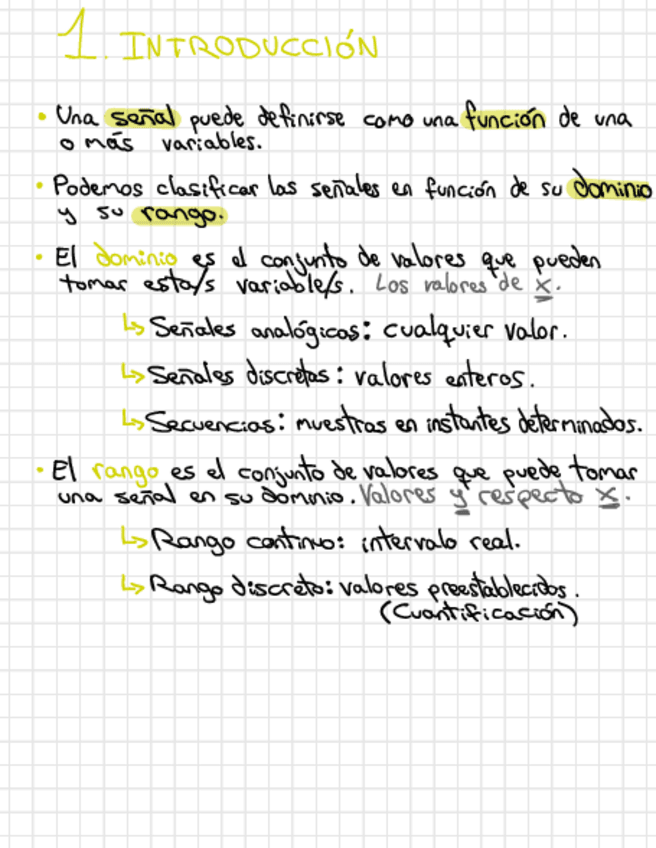 1. INTRODUCCIÓN
• Una señal puede definirse como una función de una
o más variables.
• Podemos clasificar las señales en función de su dominio
y su rango.
• El dominio es el conjunto de valores que pueden
tomar esta/s variable/s. Los valores de x.
↳ Señales analógicas: cualquier valor.
↳ Señales discretas: valores enteros.
↳ Secuencias: muestras en instantes determinados.
• El rango es el conjunto de valores que puede tomar
una señal en su dominio. Valores y respecto x.
↳ Rango continuo: intervalo real.
↳ Rango discreto: valores preestablecidos.
(Cuantificación)